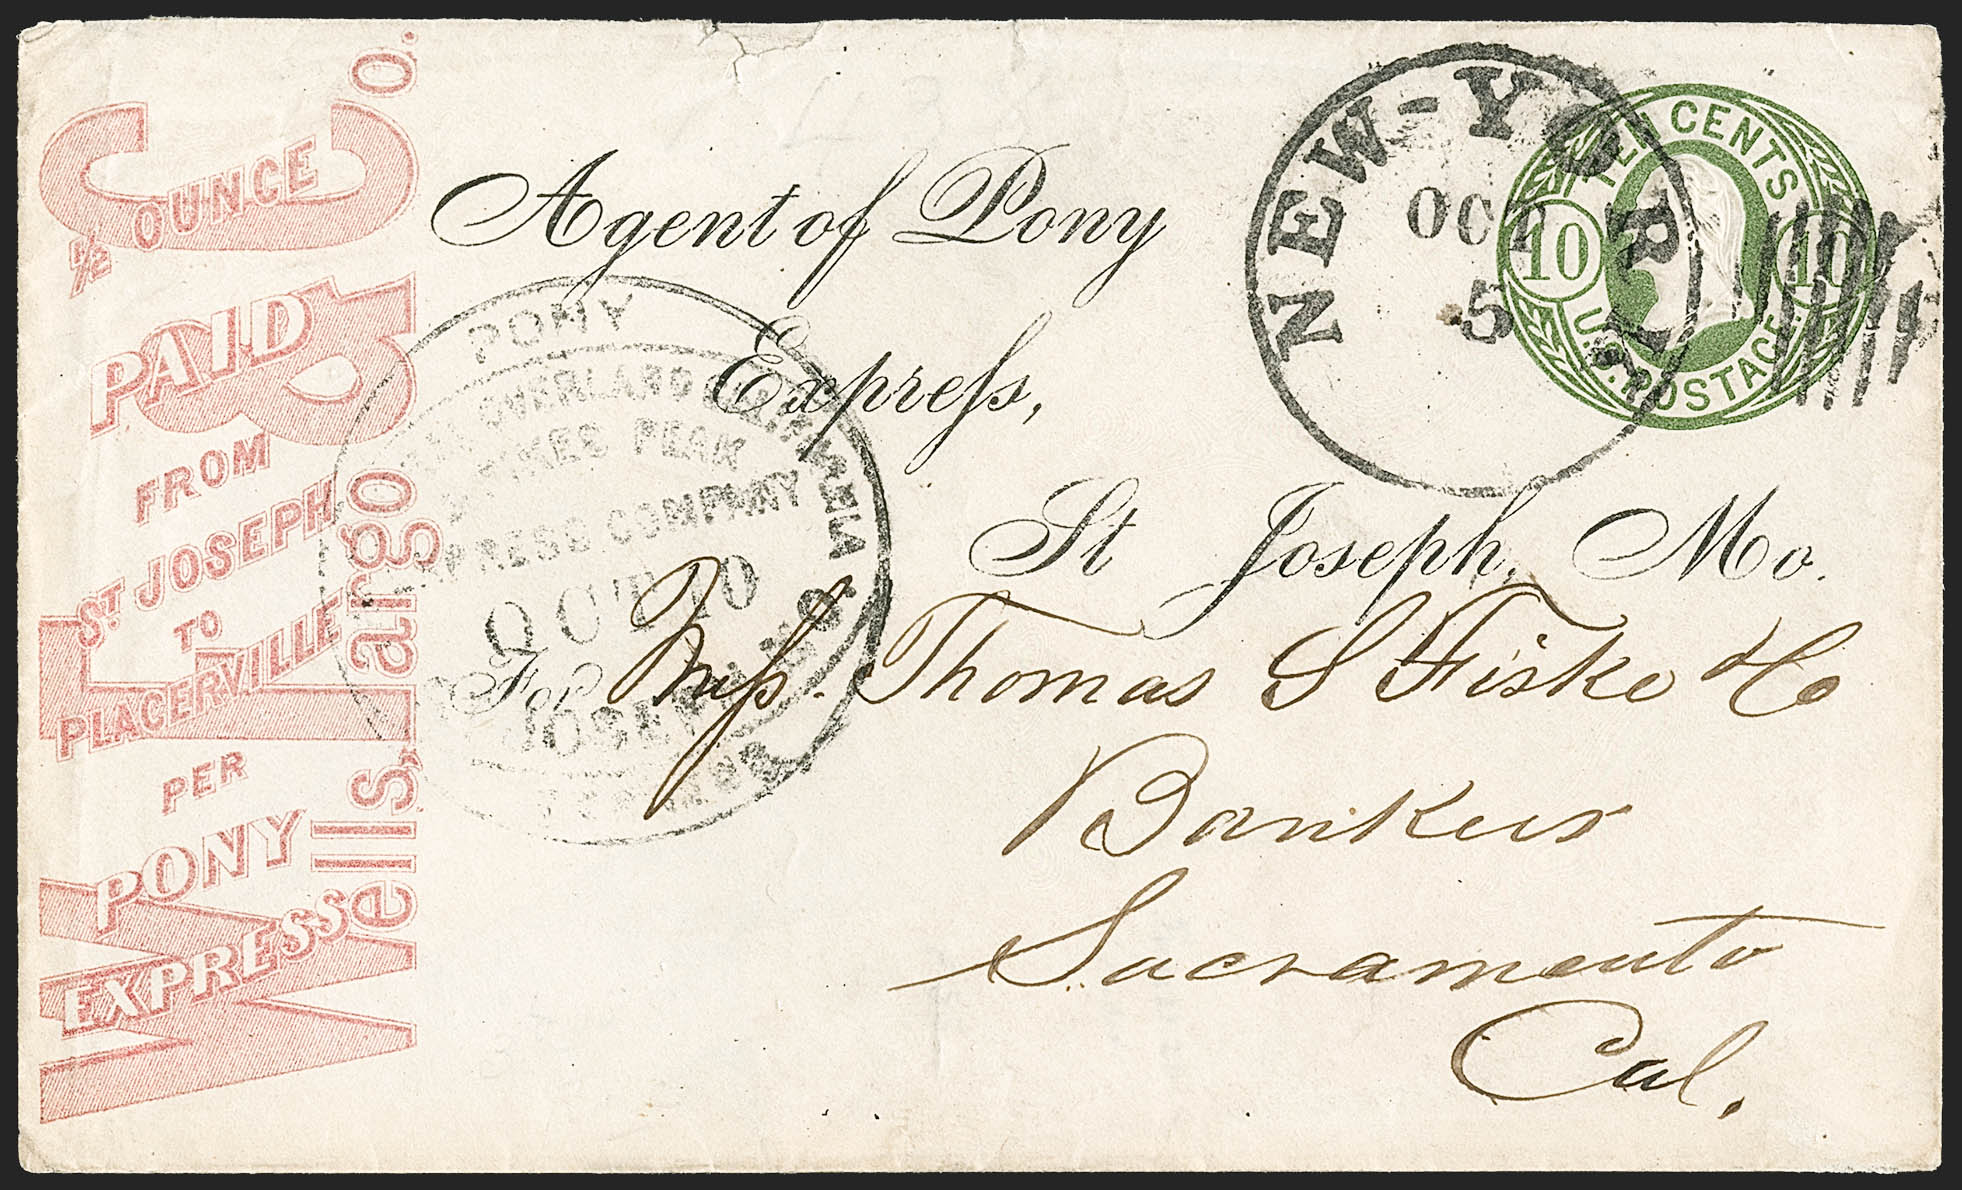 Wells, Fargo & Co.
½ OUNCE
PAID
FROM
ST JOSEPH
TO
PLACERVILLE
PER
PONY
EXPRESS
Agent of Pony
Express,
St Joseph, Mo.
For Mess. Thomas S Fiske & Co
Bankers
Sacramento
Cal.
NEW-YORK
OCT
5
TEN CENTS
10 10
U.S. POSTAGE
PONY
OVERLAND CALIFORNIA
PIKES PEAK
EXPRESS COMPANY
OCT 10
JOSEPH